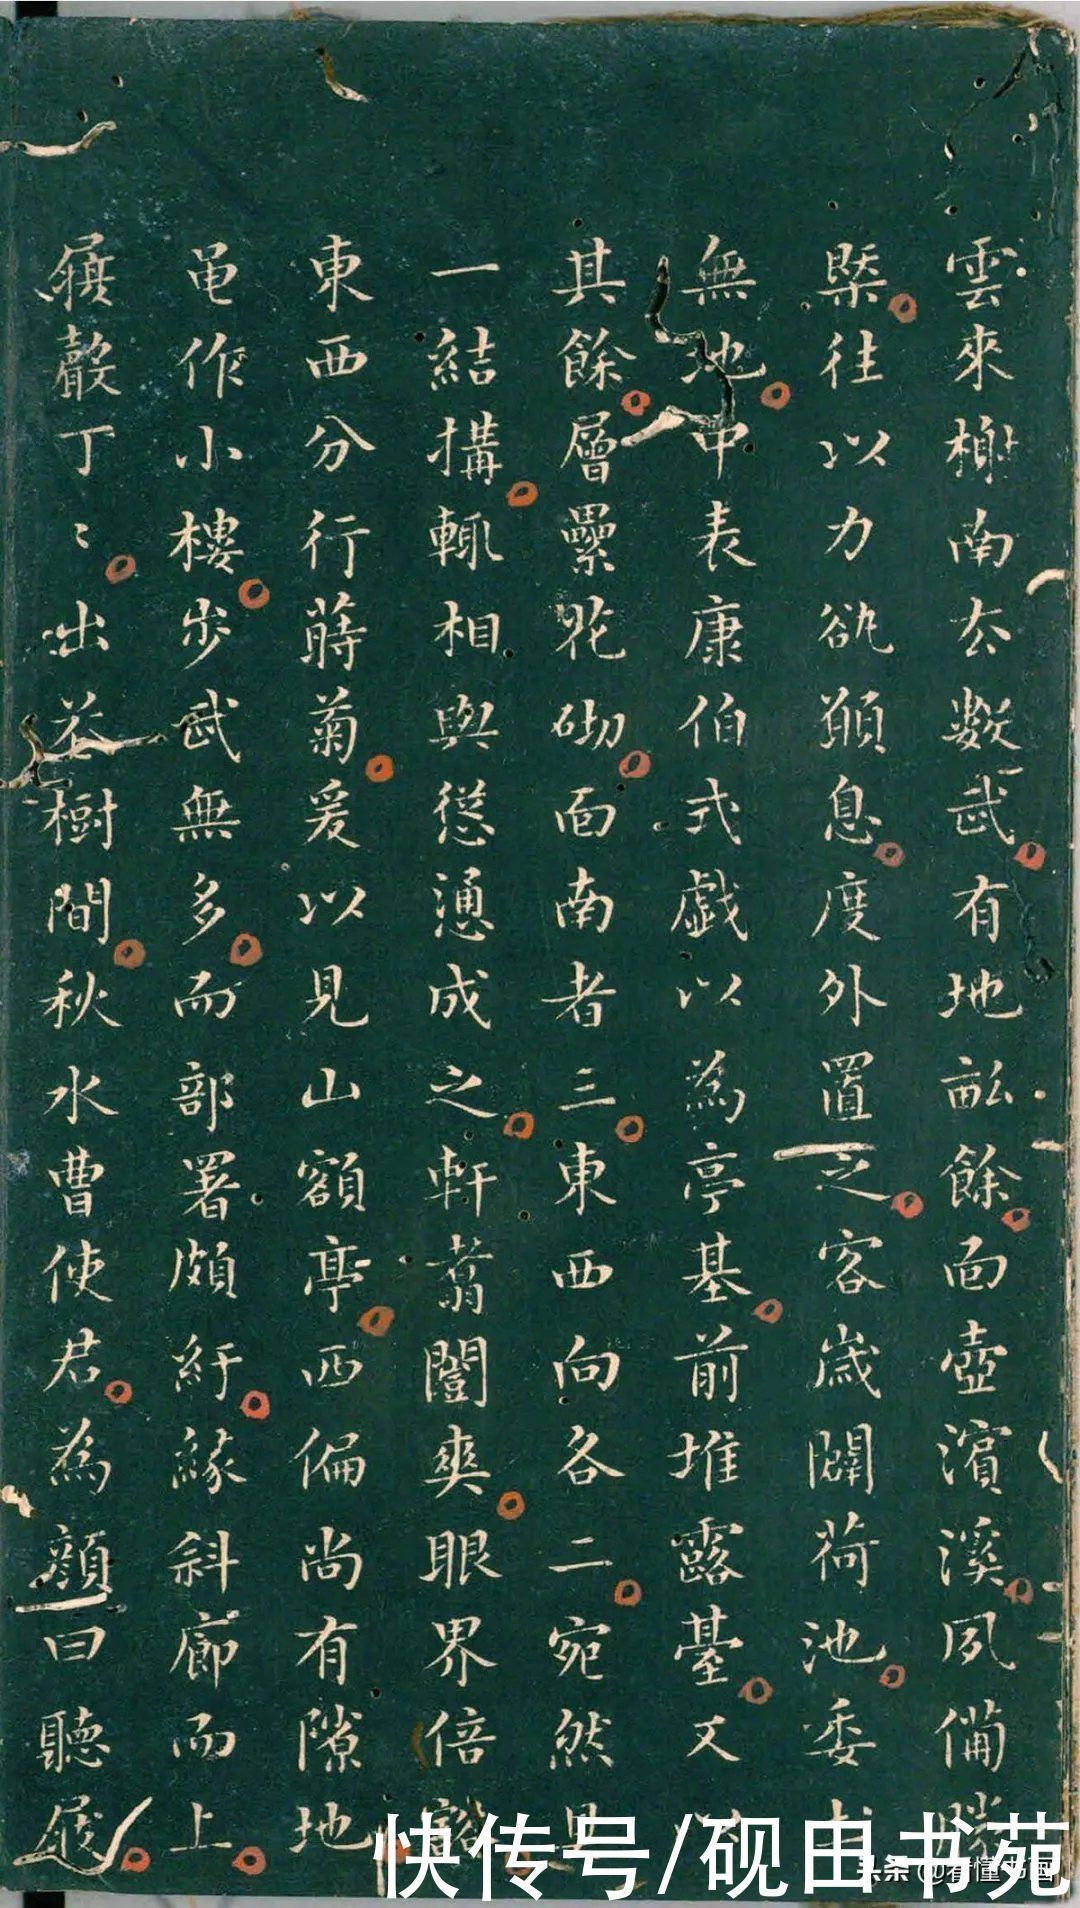 雲來榭南去數武有地畝餘面壺濱溪夙備勝
槩往以力欲頫息度外置之客歲闢荷池委
無池中表康伯式戯以為亭基前堆露臺又
其餘層壘花砌面南者三東西向各二宛然
一結搆輒相與慫慂成之軒翥闓爽眼界倍
東西分行蒔菊爰以見山額亭西偏尚有隙地
黽作小樓步武無多而部署頗紆緣斜廊而上
屧聲丁〻出茶樹間秋水曹使君為顏曰聽屐
快传号/砚田书苑
头条@看懂书画